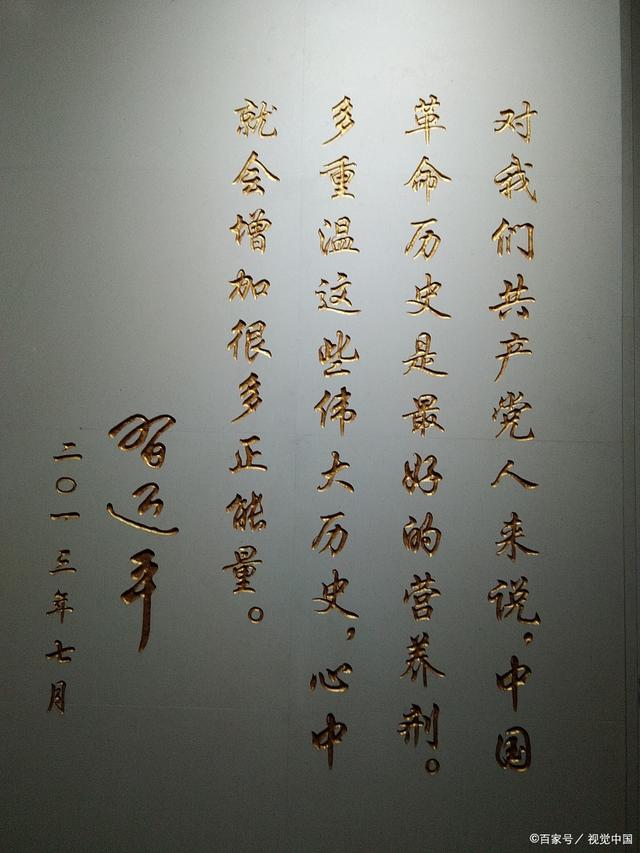 对我们共产党人来说，中国
革命历史是最好的营养剂。
多重温这些伟大历史，心中
就会增加很多正能量。
习近平
二〇一三年七月
©百家号／视觉中国